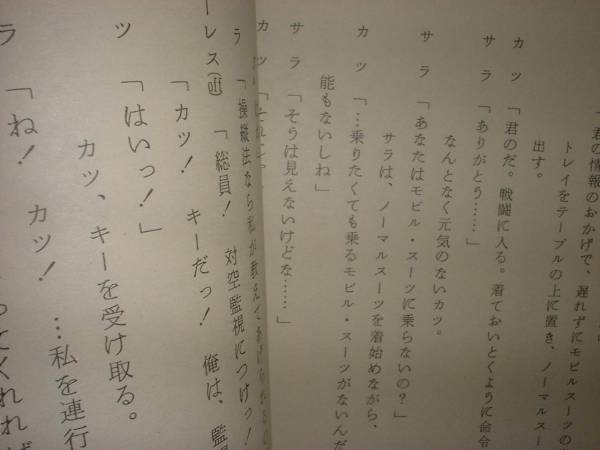 君の情報のおかげで、遅れずにモビルスーツの
トレイをテーブルの上に置き、ノーマルスー
出す。
カツ「君のだ。戦闘に入る。着ておいとくように命令
サラ「ありがとう……」
なんとなく元気のないカツ。
サラ「あなたはモビル・スーツに乗らないの?」
サラは、ノーマルスーツを着始めながら、
カツ「…乗りたくても乗るモビル・スーツがないんだ
能もないしね」
サラ「そうは見えないけどな……」
カツ「それに。
ラ「操縦法なら私が教えてあげられると
ーレス(off)「総員! 対空監視につけっ!
「カツ! キーだっ! 俺は、監
ツ「はいっ!」
カツ、キーを受け取る。
ラ「ね! カツ! …私を連行
ってくれれば